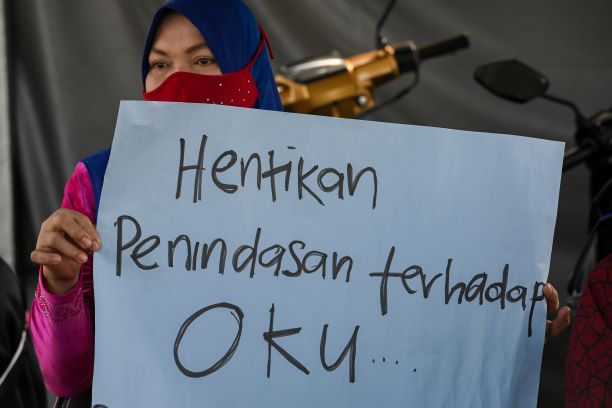 Hentikan
Penindasan terhadap
OKU....